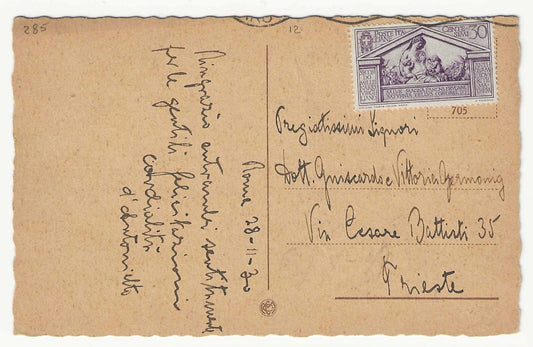 285
12
POSTE ITALIANE
CENT. 50
705
Roma 28-11-30
Ringrazio entrambi sentitamente
per le gentili felicitazioni
cordialità
d'Antonietta
Pregiatissimi Signori
Dott. Guiscardo e Vittoria
Via Cesare Battisti 35
Trieste